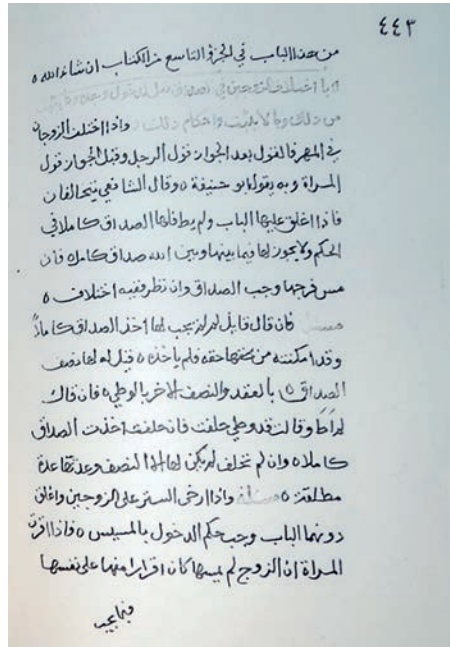 ٤٤٣
من هذا الباب في الجزو التاسع من الكتاب ان شاء الله ه
باب اختلاف الزوجين في الصداق قبل الدخول وبعده وما يثبت
من ذلك وما لا يثبت واحكام ذلك واذا اختلف الزوجان
في المهر فالقول بعد الجواز قول الرجل وقبل الجواز قول
المراة وبه يقول ابو حنيفة ه وقال الشافعي يتحالفان
فاذا اغلق عليها الباب ولم يطاها فلها الصداق كاملا في
الحكم ولا يجوز لها فيما بينها وبين الله صداق كامل ه فان
مس فرجها وجب الصداق وان نظر ففيه اختلاف ه
مسئلة فان قال قايل لم لم يجب لها اخذ الصداق كاملاً
وقد امكنته من حقه فلم ياخذه ه قيل له لها نصف
الصداق ه بالعقد والنصف الاخر بالوطي ه فان قال
لم اطا وقالت قد وطي حلفت فان حلفت اخذت الصداق
كاملا ه وان لم تحلف لم يكن لها الا النصف وعدتها عدة
مطلقة ه مسئلة واذا ارخى الستر على الزوجين واغلق
دونهما الباب وجب حكم الدخول بالمسيس ه فاذا اقرت
المراة ان الزوج لم يمسها كان اقرارا منها على نفسها
فيما يجب